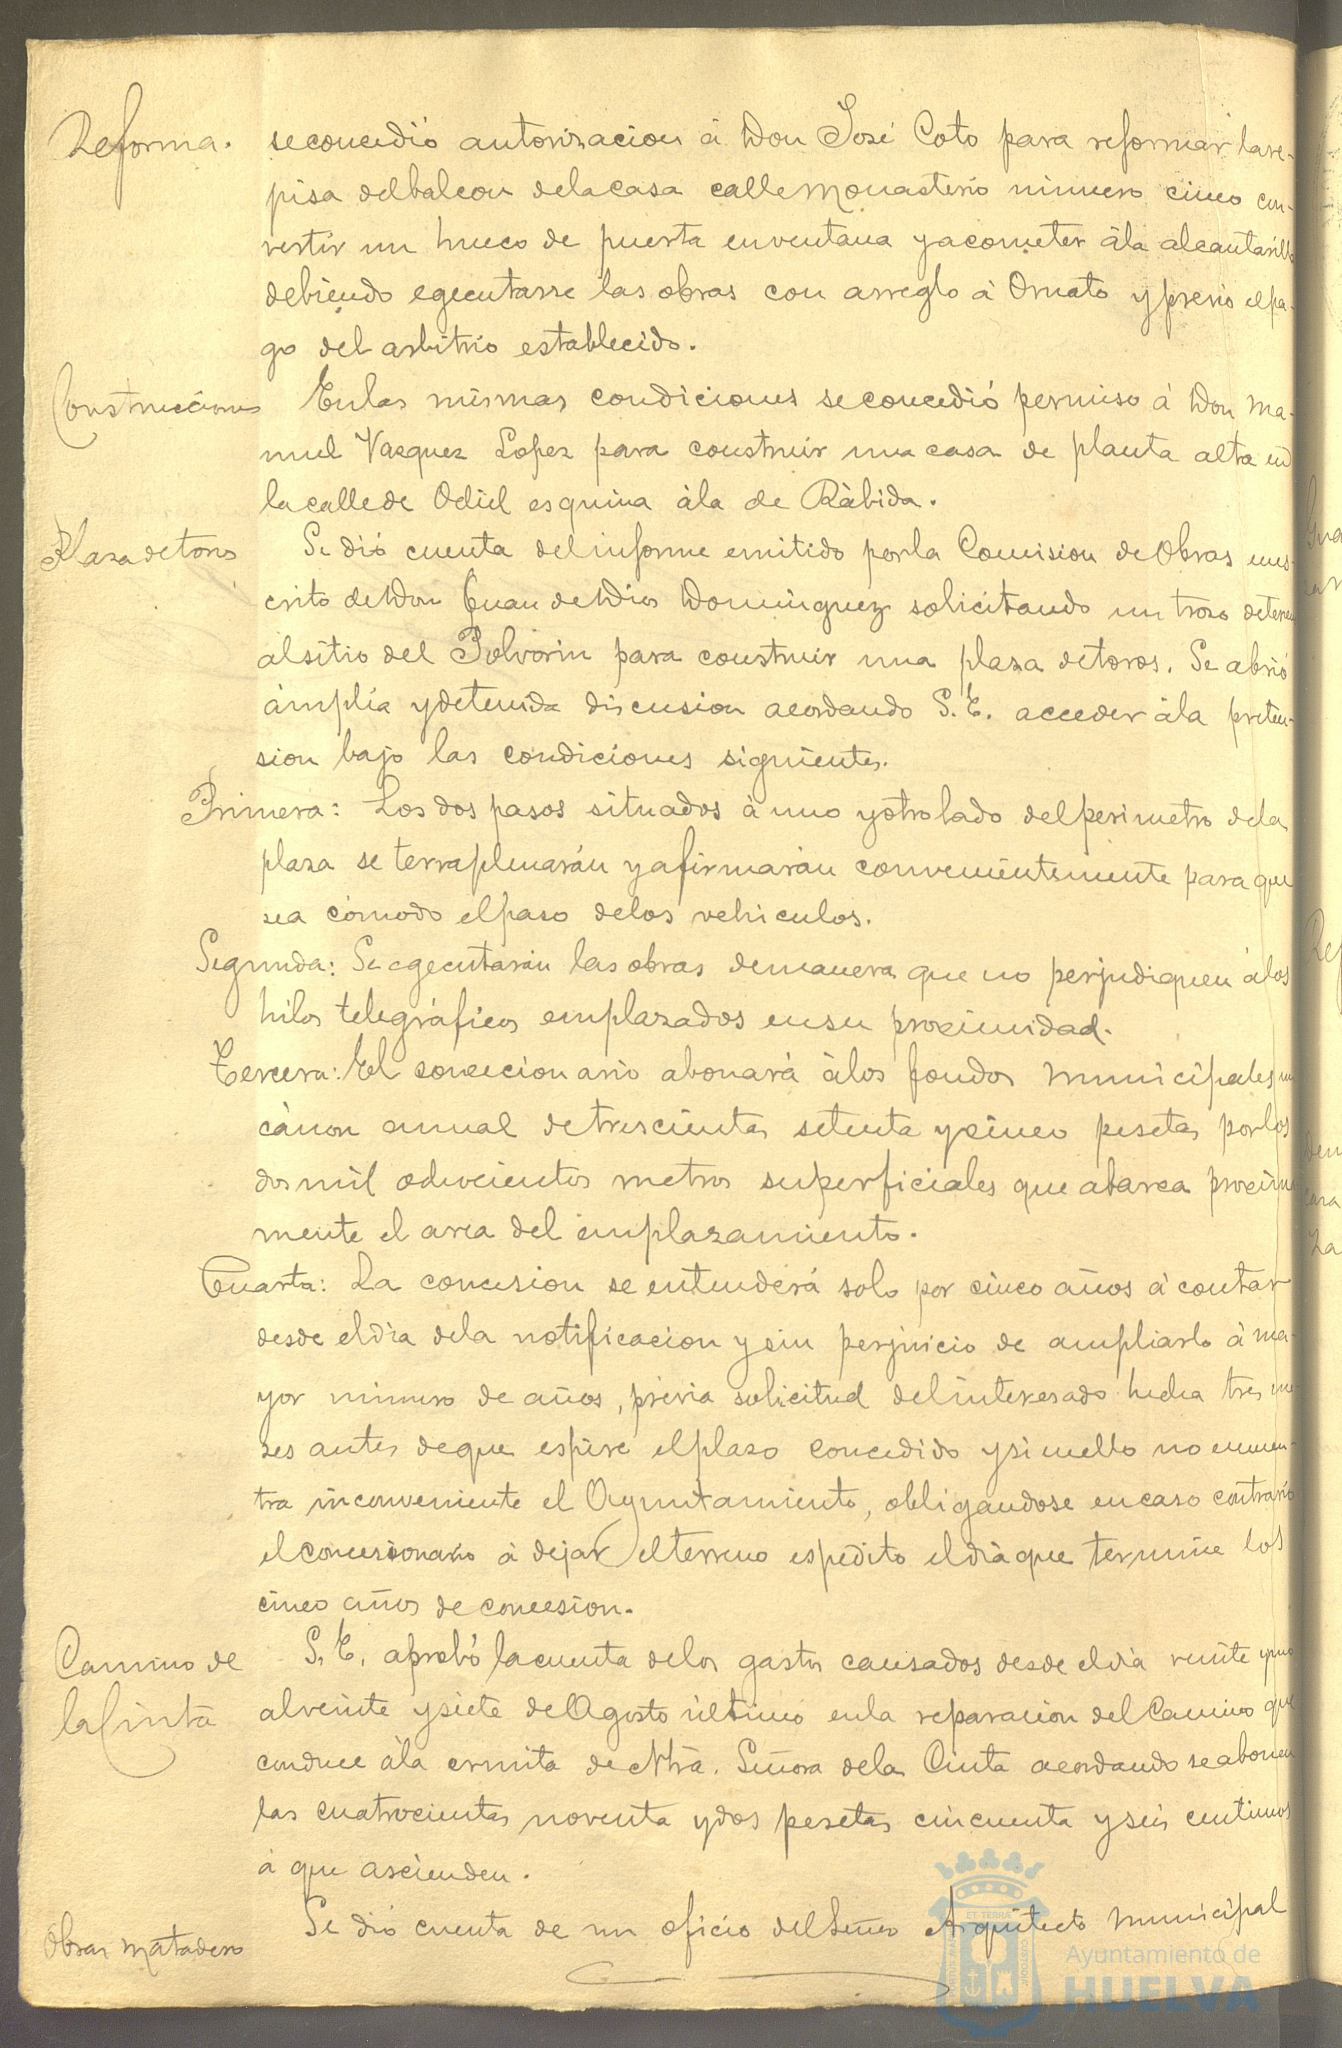 Reforma. se concedió autorizacion á Don José Coto para reformar la re-
pisa del balcon de la casa calle Monasterio número cinco con-
vertir un hueco de puerta en ventana y acometer á la alcantarilla
debiendo egecutarse las obras con arreglo á Ornato y previo el pa-
go del arbitrio establecido.
Construcciones En las mismas condiciones se concedió permiso á Don Ma-
nuel Vazquez Lopez para construir una casa de planta alta en
la calle de Odiel esquina á la de Rábida.
Plaza de toros Se dió cuenta del informe emitido por la Comision de Obras en es-
crito de Don Juan de Dios Dominguez solicitando un trozo de terreno
al sitio del Polvorin para construir una plaza de toros. Se abrió
ámplia y detenida discusion acordando S. E. acceder á la preten-
sion bajo las condiciones siguientes.
Primera: Los dos pasos situados á uno y otro lado del perimetro de la
plaza se terraplenarán y afirmarán convenientemente para que
sea cómodo el paso de los vehiculos.
Segunda: Se egecutarán las obras de manera que no perjudiquen á los
hilos telegráficos emplazados en su proximidad.
Tercera: El concecionario abonará á los fondos municipales un
cánon annual de trescientas setenta y cinco pesetas por los
dos mil ochocientos metros superficiales que abarca proxima
mente el area del emplazamiento.
Cuarta: La concesion se entenderá solo por cinco años á contar
desde el dia de la notificacion y sin perjuicio de ampliarlo á ma-
yor número de años, prévia solicitud del interesado hecha tres me
ses antes de que espire el plazo concedido y si en ello no encuen-
tra inconveniente el Ayuntamiento, obligandose en caso contrario
el concesionario á dejar el terreno espédito el dia que termine los
cinco años de concesion.
Camino de S. E. aprobó la cuenta de los gastos causados desde el dia veinte y uno
la Cinta al veinte y siete de Agosto último en la reparacion del Camino que
conduce á la ermita de Ntra. Señora de la Cinta acordando se abonen
las cuatrocientas noventa y dos pesetas cincuenta y seis centimos
á que ascienden.
Obras matadero Se dió cuenta de un oficio del Señor Arquitecto Municipal
Ayuntamiento de
HUELVA